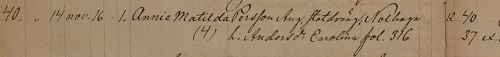 40. " 14 nov. 16 1. Annie Matilda Persson Aug. Statdräng, Nolhaga 12 40
(4) h: Andersdr Carolina fol. 316 37 ex.